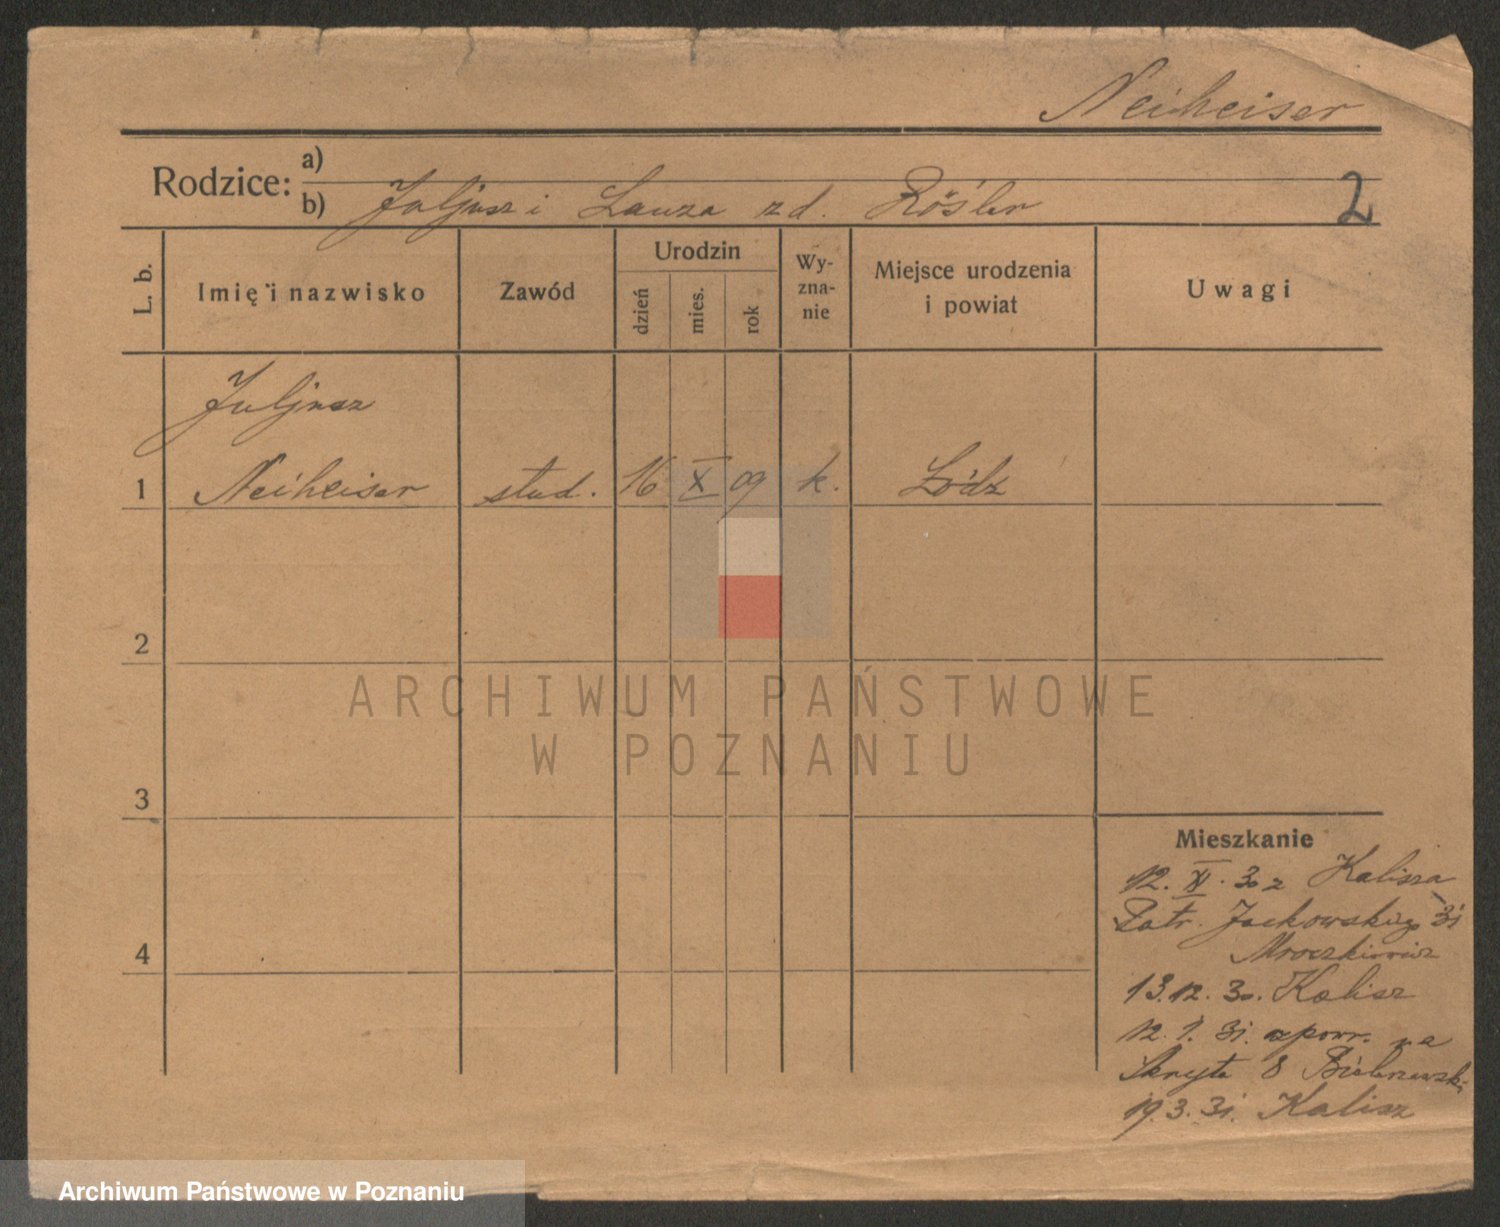 Neiheiser
Rodzice:
a)
b) Juljusz i Laura z d. Rösler
2
L. b.
Imię i nazwisko
Zawód
Urodzin
dzień
mies.
rok
Wy-
zna-
nie
Miejsce urodzenia
i powiat
Uwagi
Juljusz
1 Neiheiser stud. 16 X 09 k. Łódź
2
3
4
Mieszkanie
12. XI. 30 z Kalisza
Patr. Jackowskiego 31
Mroczkiewicz
13.12.30. Kalisz
12.1.31. z powr. na
Skryta 8
19.3.31. Kalisz
ARCHIWUM PAŃSTWOWE
W POZNANIU
Archiwum Państwowe w Poznaniu